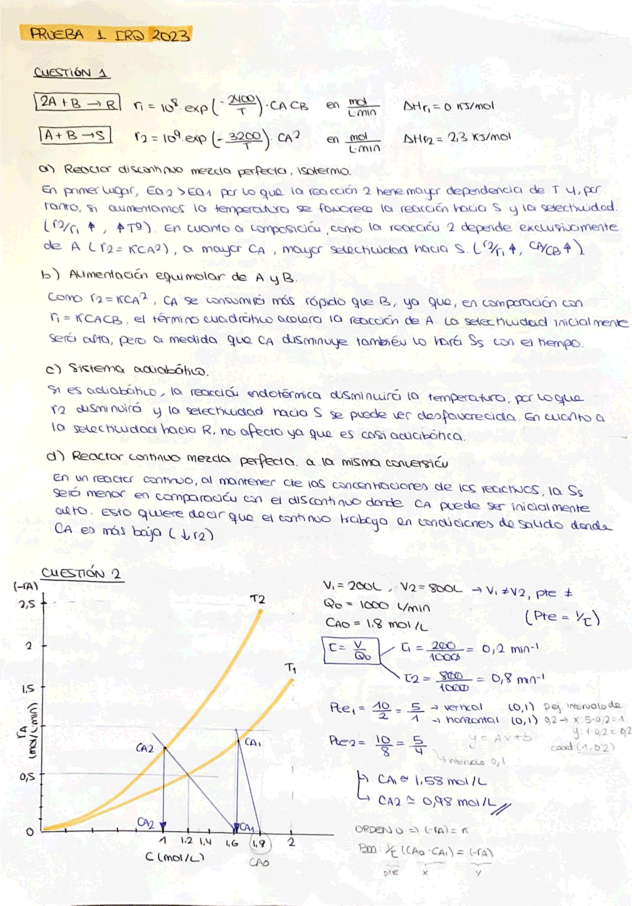 PRUEBA 1 IRQ 2023
CUESTIÓN 1
2A + B → R r₁ = 10⁸ exp(-2400/T) · CA CB en mol/L·min ΔHr₁ = 0 KJ/mol
A + B → S r₂ = 10⁹ exp(-3200/T) CA² en mol/L·min ΔHr₂ = 2,3 KJ/mol
a) Reactor discontinuo mezcla perfecta, isotermo.
En primer lugar, Ea2 > Ea1 por lo que la reacción 2 tiene mayor dependencia de T y, por
tanto, si aumentamos la temperatura se favorece la reacción hacia S y la selectividad.
(r₂/r₁ ↑, ↑Tª). En cuanto a composición, como la reacción 2 depende exclusivamente
de A (r₂ = KCA²), a mayor CA, mayor selectividad hacia S. (r₂/r₁ ↑, CA/CB ↑)
b) Alimentación equimolar de A y B.
Como r₂ = KCA², CA se consumirá más rápido que B, ya que, en comparación con
r₁ = KCACB, el término cuadrático acelera la reacción de A. La selectividad inicialmente
será alta, pero a medida que CA disminuye también lo hará Ss con el tiempo.
c) Sistema adiabático.
Si es adiabático, la reacción endotérmica disminuirá la temperatura, por lo que
r₂ disminuirá y la selectividad hacia S se puede ver desfavorecida. En cuanto a
la selectividad hacia R, no afecta ya que es casi
d) Reactor continuo mezcla perfecta. a la misma conversión
En un reactor continuo, al mantener cte las concentraciones de los reactivos, la Ss
será menor en comparación con el discontinuo donde CA puede ser inicialmente
alto. Esto quiere decir que el continuo trabaja en condiciones de salida donde
CA es más baja (↓r₂)
CUESTIÓN 2
V₁ = 200L, V₂ = 800L → V₁ ≠ V₂, pte ≠
Q₀ = 1000 L/min (Pte = 1/τ)
CA0 = 1.8 mol/L
τ = V/Q₀ τ₁ = 200/1000 = 0,2 min⁻¹
τ2 = 800/1000 = 0,8 min⁻¹
Pte₁ = 10/2 = 5/1 → vertical (0,1) → horizontal (0,1) Pej. intervalo de
0,2 → x: 5·0,2 = 1
y: 1·0,2 = 0,2
coord (1, 0,2)
Pte2 = 10/8 = 5/4 y = Ax + b
intervalo 0,1
CA₁ ≈ 1,58 mol/L
CA2 ≈ 0,98 mol/L
ORDEN 0 ⇒ (-rA) = K
BM: 1/τ (CA0 - CA1) = (-rA)
pte x y
(-rA)
2,5
2
1,5
rA (mol/L min)
0,5
0
T2
T₁
CA2
CA₁
CA2
CA₁
1 1.2 1,4 1,6 1,8 2
C (mol/L)
CA0